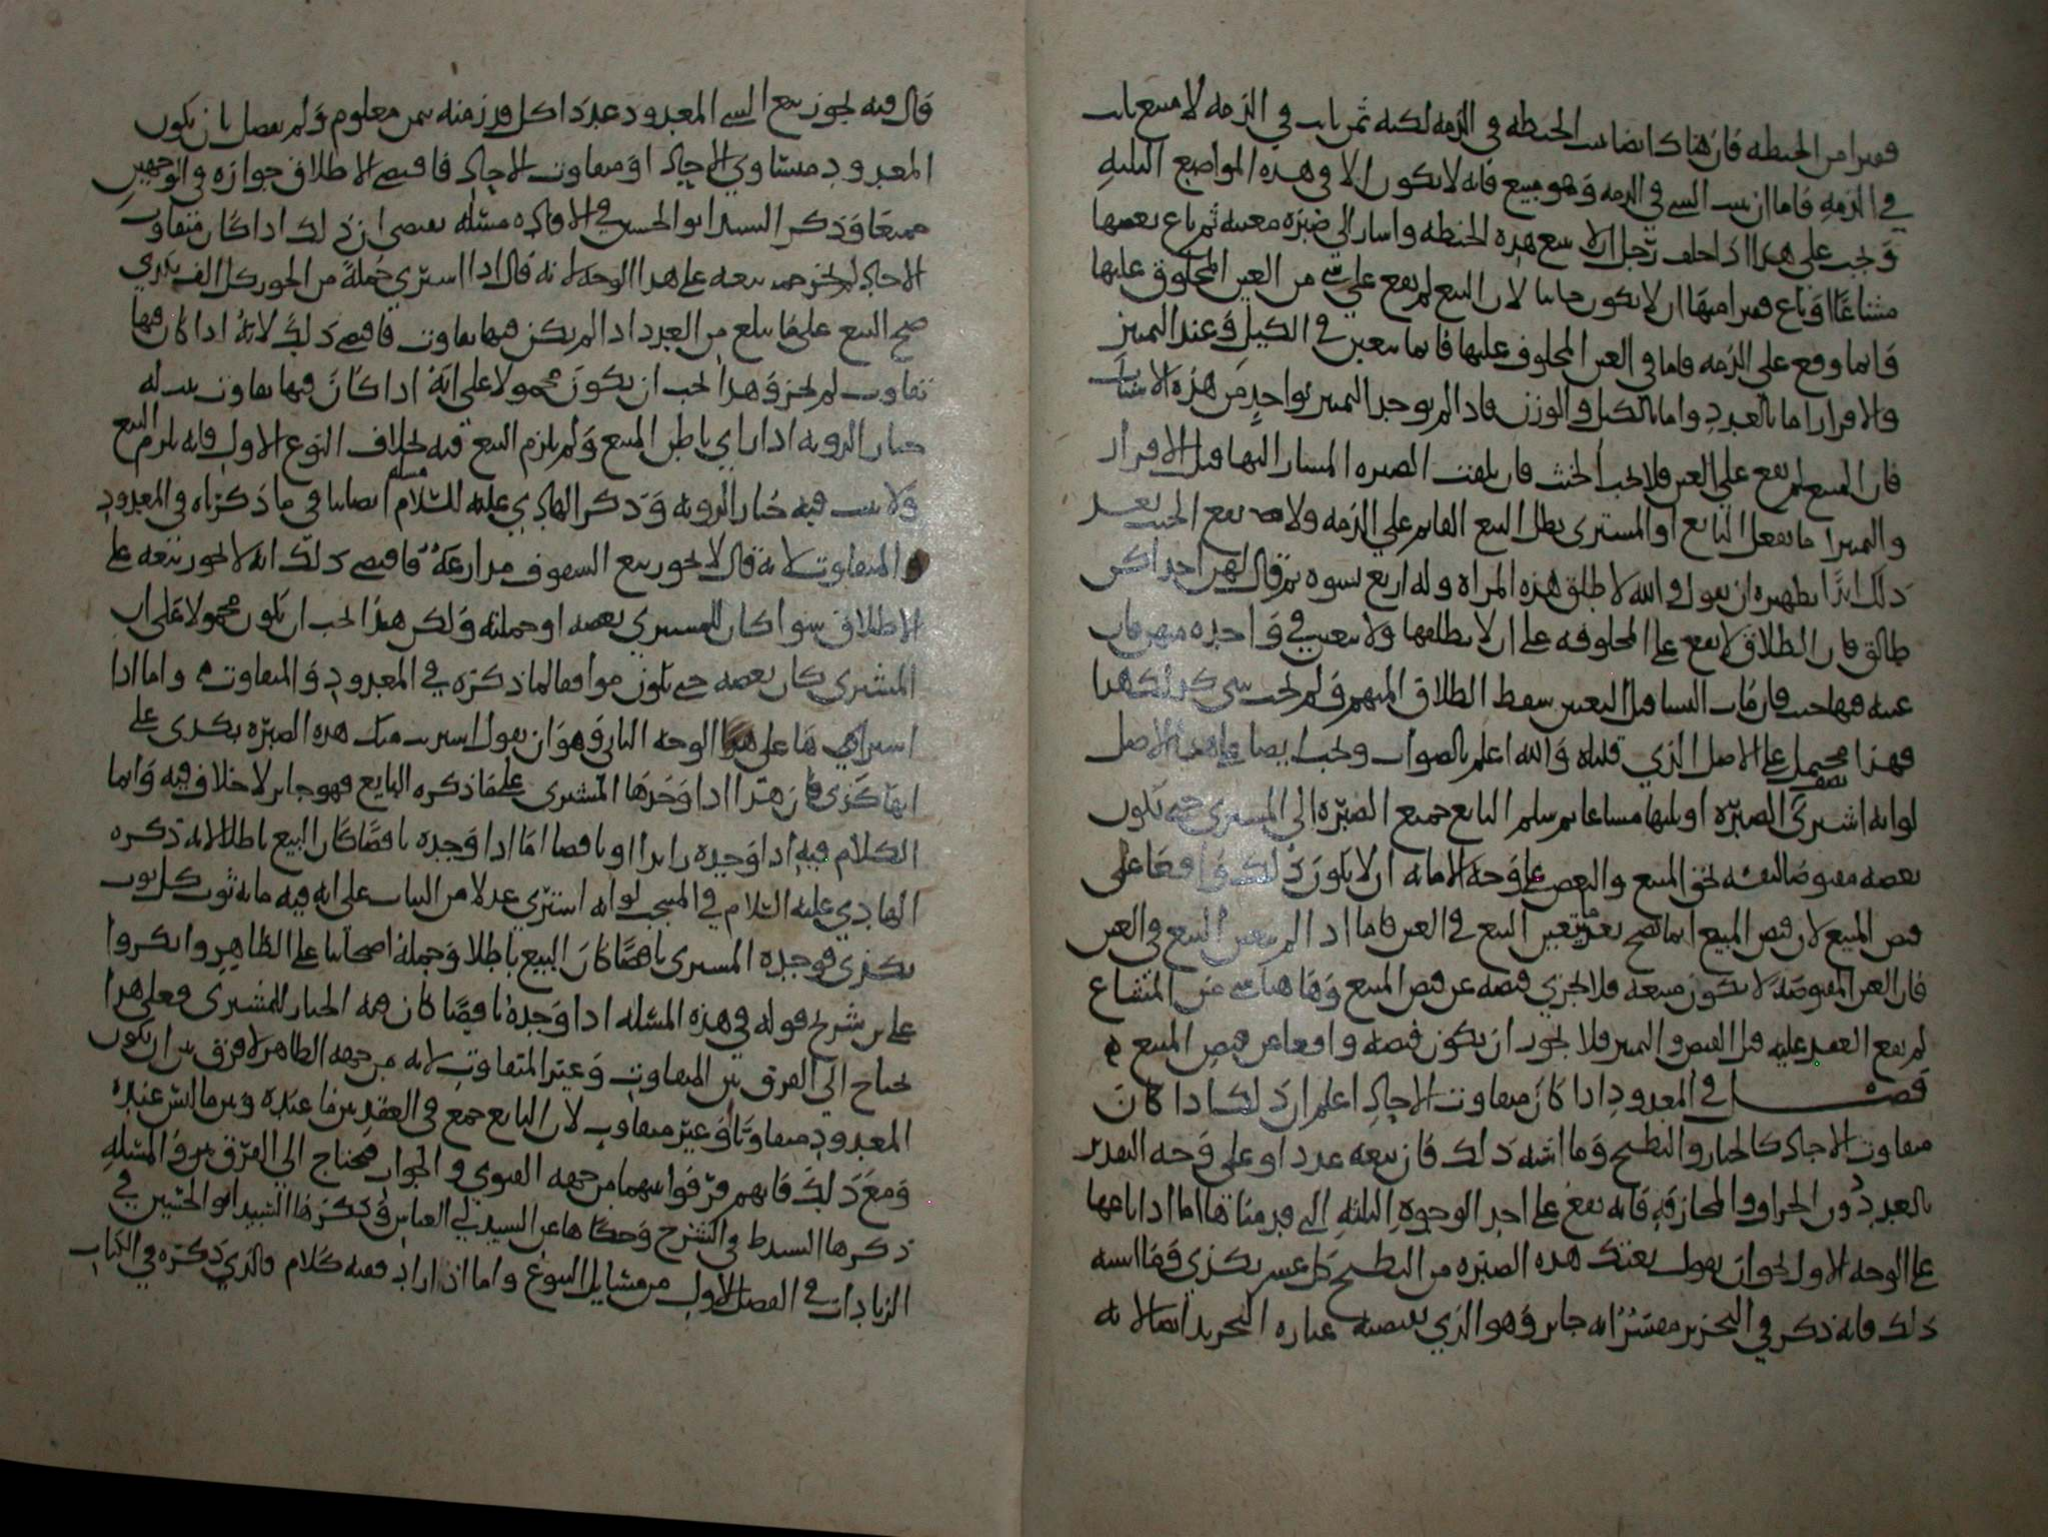 قفيزا من الحنطه فان هناك ايضا ثبت الحنطه في الذمه لكنه ثمن ثابت في الذمه لا مبيع ثابت
في الذمه فاما ان يثبت الشي في الذمه وهو مبيع فانه لا يكون الا في هذه المواضع الثلثه
ويجب على هذا اذا حلف رجل ان لا يبيع هذه الحنطه واشار الى صبره معينه ثم باع بعضها
مشاعا او باع قفيزا منها ان لا يكون حانثا لان البيع لم يقع على شي من العين المحلوف عليها
وانما وقع على الذمه فاما في العين المحلوف عليها فانما يتعين في الكيل وعند التمييز
والافراز اما بالعدد واما بالكيل والوزن فاذا لم يوجد التمييز بواحد من هذه الاشيا
فان البيع لم يقع على العين فلا يجب الحنث فان تلفت الصبره المشار اليها قبل الافراز
والتمييز اما بفعل البايع او المشتري بطل البيع القايم على الذمه ولا يقع الحنث بعد
ذلك ابدا نظيره ان يقول والله لا طلق هذه المراه وله اربع نسوه ثم قال لهن احداكن
طالق فان الطلاق لا يقع على المحلوفه على ان لا يطلقها ولا يتعين في واحده منهن فان
عينه فيها حنث فان مات النسا قبل التعيين سقط الطلاق المبهم ولم يحنث كذلك هذا
فهذا محتمل على الاصل الذي قلناه والله اعلم بالصواب ويجب ايضا على هذا الاصل
لو انه اشترى نصف الصبره او ثلثها مشاعا ثم سلم البايع جميع الصبره الى المشتري حتى يكون
بعضه مقبوضا لنفسه بحق المبيع والبعض على وجه الامانه ان لا يكون ذلك واقعا على
قبض المبيع لان قبض المبيع انما يصح بعد تعين البيع في العين فاما اذا لم يتعين البيع في العين
فان العين المقبوضه لا تكون مبيعه فلا يجزي قبضه عن قبض المبيع وها هنا شي من المشاع
لم يقع العقد عليه قبل القبض والتمييز فلا يجوز ان يكون قبضه واقعا عن قبض المبيع
فصل في المعدود اذا كان متفاوت الاحاد اعلم ان ذلك اذا كان
متفاوت الاحاد كالخيار والبطيخ وما اشبه ذلك فان بيعه عددا وعلى وجه التقدير
بالعدد دون الجزاف والمجازفه فانه يقع على احد الوجوه الثلثه التي قدمناها اما اذا باعها
على الوجه الاول نحو ان يقول بعتك هذه الصبره من البطيخ كل عشر بكذى وما اشبه
ذلك فانه ذكر في التحرير مفسرا انه جايز وهو الذي يقتضيه عباره التجريد ايضا لانه
قال فيه يجوز بيع الشي المعدود عددا كل قدر منه بثمن معلوم ولم يفصل بان يكون
المعدود متساوي الاحاد او متفاوت الاحاد فاقتضى الاطلاق جوازه في الوجهين
جميعا وذكر السيد ابو الحسين في الافاده مسئله يقتضي ان ذلك اذا كان متفاوت
الاحاد لم يجز بيعه على هذا الوجه لانه قال اذا اشترى جمله من الجوز كل الف بكذي
صح البيع على ما يبلغ من العدد اذا لم يكن فيها تفاوت فاقتضى ذلك لانه اذا كان فيها
تفاوت لم يجز وهذا يجب ان يكون محمولا على انه اذا كان فيها تفاوت يثبت له
خيار الرويه اذا راي باطن المبيع ولم يلزم البيع فيه بخلاف النوع الاول فانه يلزم البيع
ولا يثبت فيه خيار الرويه وذكر الهادي عليه السلام مسئلة ايضا ينافي ما ذكرناه في المعدود
المتفاوت لانه قال لا يجوز بيع السقوف مذارعة فاقتضى ذلك انه لا يجوز بيعه على
الاطلاق سوا كان المشتري بعضه او جملته ولكن هذا يجب ان يكون محمولا على ان
المشترى كان بعضه حتى يكون موافقا لما ذكره في المعدود والمتفاوت واما اذا
اشتراها على هذا الوجه الثاني وهو ان يقول اشتريت منك هذه الصبره بكذى على
انها كذى فان هذا اذا وجدها المشترى على ما ذكره البايع فهو جايز لا خلاف فيه وانما
الكلام فيه اذا وجده زايدا او ناقصا اما اذا وجده ناقصا كان البيع باطلا لانه ذكره
الهادي عليه السلام في المنتخب لو انه اشترى عدلا من الثياب على انه فيه مايه ثوب كل ثوب
بكذى فوجده المشترى ناقصا كان البيع باطلا وحمله اصحابنا على الظاهر وانكروا
على بن شريح قوله في هذه المسئله اذا وجده ناقصا كان فيه الخيار للمشترى فعلى هذا
يحتاج الى الفرق بين المتفاوت وغير المتفاوت لانه من جهه الظاهر لا فرق بين ان يكون
المعدود متفاوتا او غير متفاوت لان البايع جمع في العقد بين ما عنده وبين ما ليس عنده
ومع ذلك فانهم فرقوا بينهما من جهه الفتوى والجواز فيحتاج الى الفرق بين المسئله
ذكرها السيد ط في الشرح وحكاها عن السيد ابي العباس وذكرها السيد ابو الحسين في
الزيادات في الفصل الاول من مسايل البيوع واما اذا زاد ففيه كلام فالذي ذكره في الكتاب